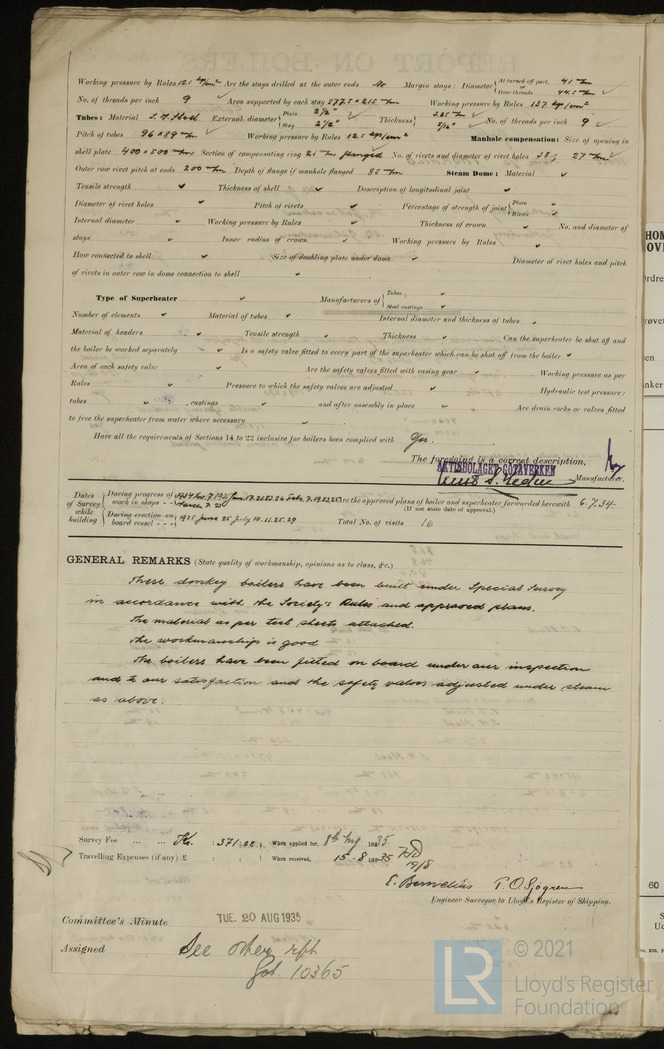 Working pressure by Rules 12.5 kg/cm² Are the stays drilled at the outer ends No Margin stays: Diameter { At turned off part, 45 m/m or Over threads 44.5 m/m
No. of threads per inch 9 Area supported by each stay 277.5 x 215 m/m Working pressure by Rules 13.7 kg/cm²
Tubes: Material S. M. Steel External diameter { Plain 2½" Stay 2½" Thickness { 3.25 m/m 5/16" No. of threads per inch 9
Pitch of tubes 96 x 89 m/m Working pressure by Rules 12.5 kg/cm² Manhole compensation: Size of opening in
shell plate 400 x 500 m/m Section of compensating ring 21 m/m flanged No. of rivets and diameter of rivet holes 38; 27 m/m
Outer row rivet pitch at ends 200 m/m Depth of flange if manhole flanged 85 m/m Steam Dome: Material
Tensile strength Thickness of shell Description of longitudinal joint
Diameter of rivet holes Pitch of rivets Percentage of strength of joint { Plate Rivets
Internal diameter Working pressure by Rules Thickness of crown No. and diameter of
stays Inner radius of crown Working pressure by Rules
How connected to shell Size of doubling plate under dome Diameter of rivet holes and pitch
of rivets in outer row in dome connection to shell
Type of Superheater Manufacturers of { Tubes Steel castings
Number of elements Material of tubes Internal diameter and thickness of tubes
Material of headers Tensile strength Thickness Can the superheater be shut off and
the boiler be worked separately Is a safety valve fitted to every part of the superheater which can be shut off from the boiler
Area of each safety valve Are the safety valves fitted with easing gear Working pressure as per
Rules Pressure to which the safety valves are adjusted Hydraulic test pressure:
tubes , castings and after assembly in place Are drain cocks or valves fitted
to free the superheater from water where necessary
Have all the requirements of Sections 14 to 22 inclusive for boilers been complied with Yes.
The foregoing is a correct description,
AKTIEBOLAGET GÖTAVERKEN
Manufacturer.
Dates of Survey while building { During progress of work in shops - - 1934 Nov. 7. 1935 Jan. 17.21.23.26 Feb. 7.19.23.25 March 7. 20 Are the approved plans of boiler and superheater forwarded herewith 6.7.34.
(If not state date of approval.)
During erection on board vessel - - - 1935 June 25 July 10.11.25.29 Total No. of visits 16
GENERAL REMARKS (State quality of workmanship, opinions as to class, &c.)
These donkey boilers have been built under Special Survey
in accordance with the Society's Rules and approved plans.
The material as per test sheets attached.
The workmanship is good
The boilers have been fitted on board under our inspection
and to our satisfaction and the safety valves adjusted under steam
as above.
Survey Fee ... ... Kr. : 371:28 When applied for, 8th Aug 1935
Travelling Expenses (if any) £ : : When received, 15-8 1935
19/8
E. Bernelius T. O. Sjogren
Engineer Surveyor to Lloyd's Register of Shipping.
Committee's Minute TUE. 20 AUG 1935
Assigned See other rpt
Got. 10365
© 2021
LR
Lloyd's Register
Foundation
60